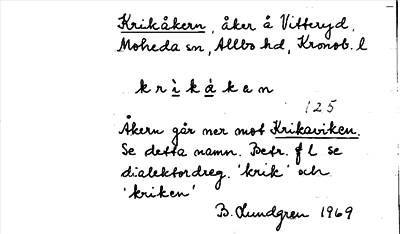 Krikåkern, åker å Vitteryd,
Moheda sn, Allbo hd, Kronob. l
k r ì k á k a n
125
Åkern går ner mot Krikaviken.
Se detta namn. Betr. f l se
dialektordreg. 'krik' och
'kriken'
B. Lundgren 1969